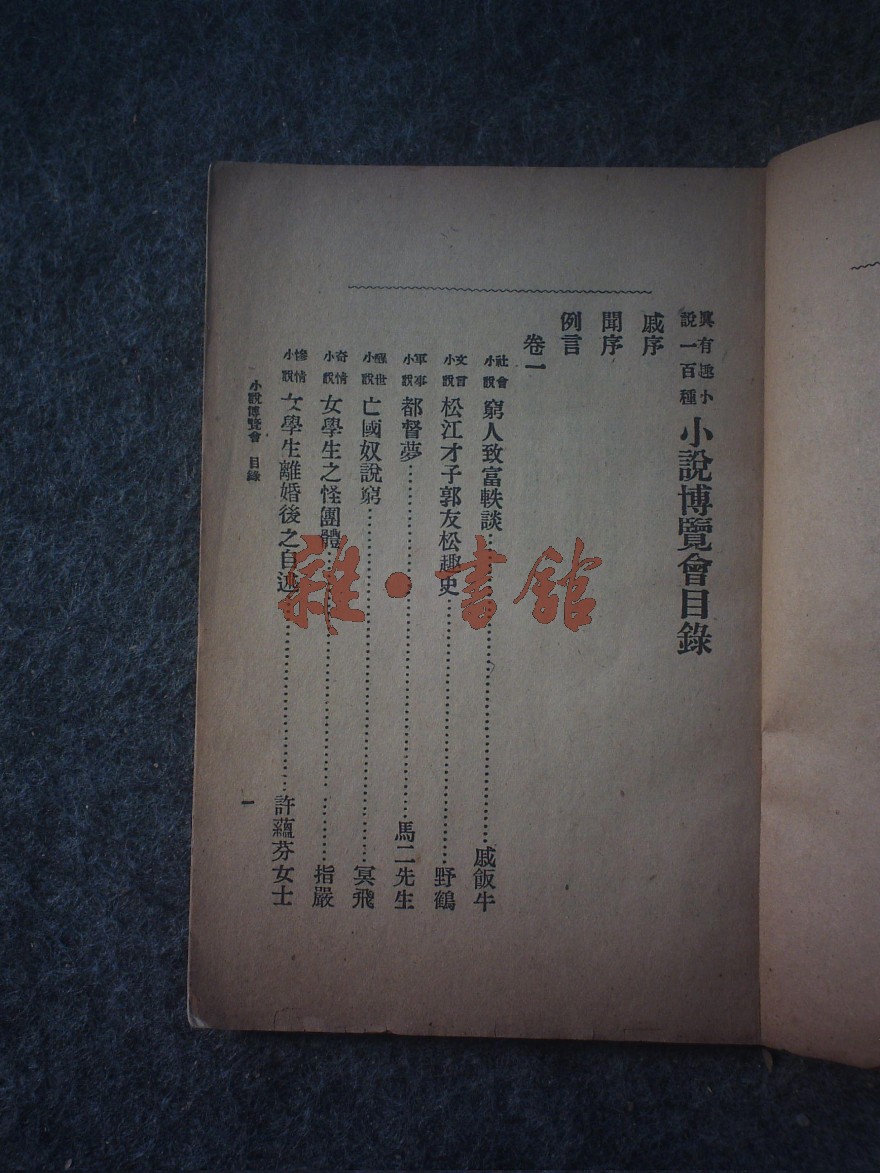 興有趣小說一百種 小說博覽會目錄
戚序
聞序
例言
卷一
社會小說 窮人致富軼談 戚飯牛
文言小說 松江才子郭友松趣史 野鶴
軍事小說 都督夢 馬二先生
醒世小說 亡國奴說窮 冥飛
奇情小說 女學生之怪團體 指嚴
慘情小說 女學生離婚後之自述 許蘊芬女士
小說博覽會 目錄
一
雜·書館